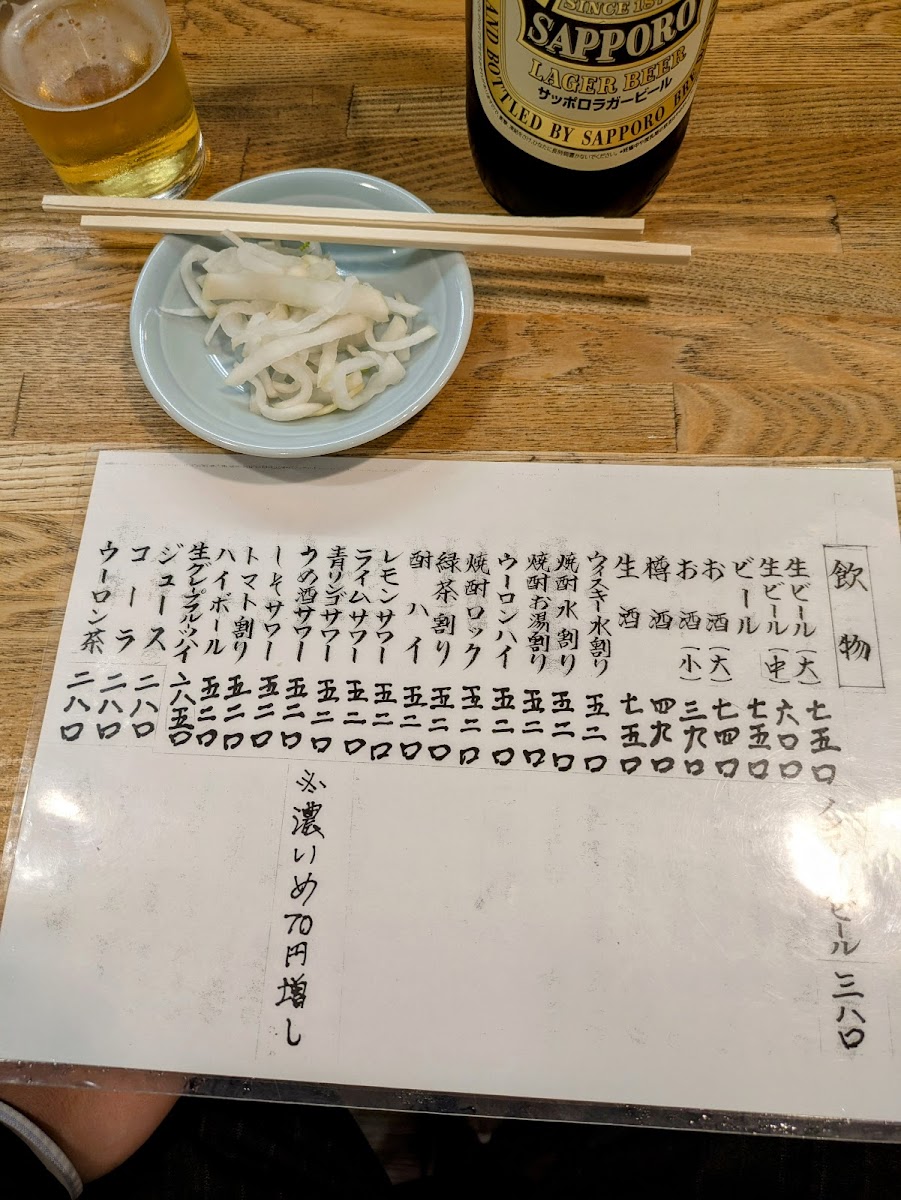 SINCE 18
SAPPORO
LAGER BEER
サッポロラガービール
AND BOTTLED BY SAPPORO BR
飲物
生ビール(大) 七五〇
生ビール(中) 六〇〇
ビール 七五〇
お酒(大) 七四〇
お酒(小) 三九〇
樽酒 四九〇
生酒 七五〇
ウイスキー水割り 五二〇
焼酎水割り 五二〇
焼酎お湯割り 五二〇
ウーロンハイ 五二〇
焼酎ロック 五二〇
緑茶割り 五二〇
酎ハイ 五二〇
レモンサワー 五二〇
ライムサワー 五二〇
青リンゴサワー 五二〇
うめ酒サワー 五二〇
しそサワー 五二〇
トマト割り 五二〇
ハイボール 五二〇
生グレープフルーツハイ 六五〇
ジュース 二八〇
コーラ 二八〇
ウーロン茶 二八〇
ビール 三八〇
※濃いめ70円増し